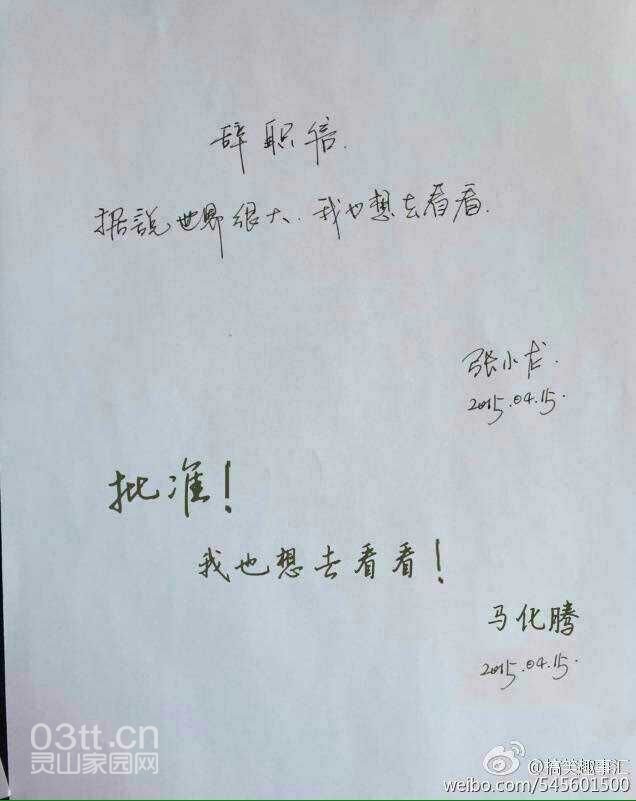 辞职信.
据說世界很大.我也想去看看.
张小龙.
2015.04.15.
批准!
我也想去看看!
马化腾
2015.04.15.
03tt.cn
灵山家园网
@搞笑趣事汇
weibo.com/545601500